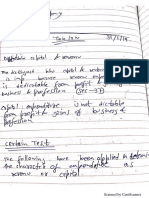 Tax law
30/8/19
capital & revenue
The distinct b/w capital & revenue
is imp because revenue expenditure
is deductable from profit & gains of
business & profession (sec →37)
capital expenditure is not dictable
from profit & gains of business &
profession.
CERTAIN TEST
The following have been applied to determine
the character of expenditure as
revenue or capital
Scanned by CamScanner